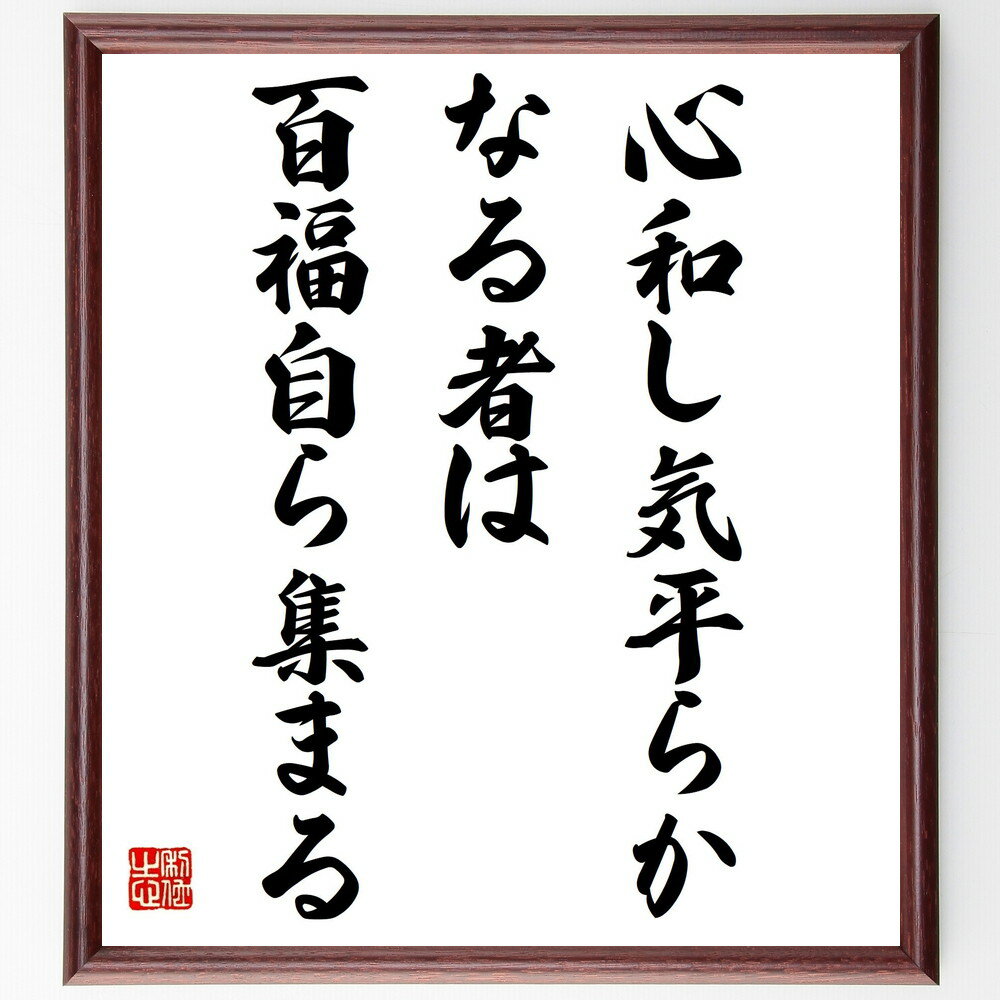 心和し気平らか
なる者は
百福自ら集まる